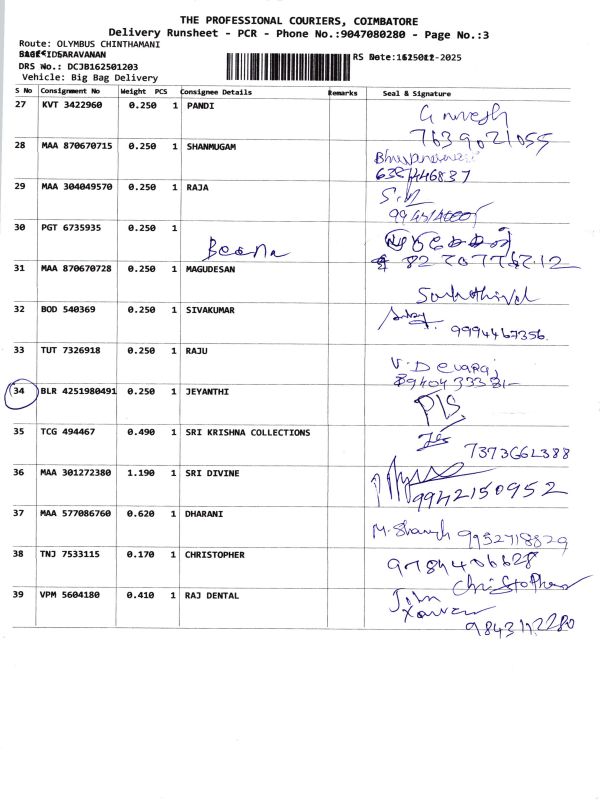 THE PROFESSIONAL COURIERS, COIMBATORE
Delivery Runsheet - PCR - Phone No.:9047080280 - Page No.:3
Route: OLYMBUS CHINTHAMANI
SARAVANAN
DRS No.: DCJB162501203
RS Date: -2025
Vehicle: Big Bag Delivery
S No Consignment No Weight PCS Consignee Details Remarks Seal & Signature
27 KVT 3422960 0.250 1 PANDI
7639021055
28 MAA 870670715 0.250 1 SHANMUGAM
29 MAA 304049570 0.250 1 RAJA
30 PGT 6735935 0.250 1
Beena
31 MAA 870670728 0.250 1 MAGUDESAN
32 BOD 540369 0.250 1 SIVAKUMAR
9994467356
33 TUT 7326918 0.250 1 RAJU
V. Devaraj
34 BLR 4251980491 0.250 1 JEYANTHI
35 TCG 494467 0.490 1 SRI KRISHNA COLLECTIONS
36 MAA 301272380 1.190 1 SRI DIVINE
9942150952
37 MAA 577086760 0.620 1 DHARANI
38 TNJ 7533115 0.170 1 CHRISTOPHER
9789406628
Christopher
39 VPM 5604180 0.410 1 RAJ DENTAL
John